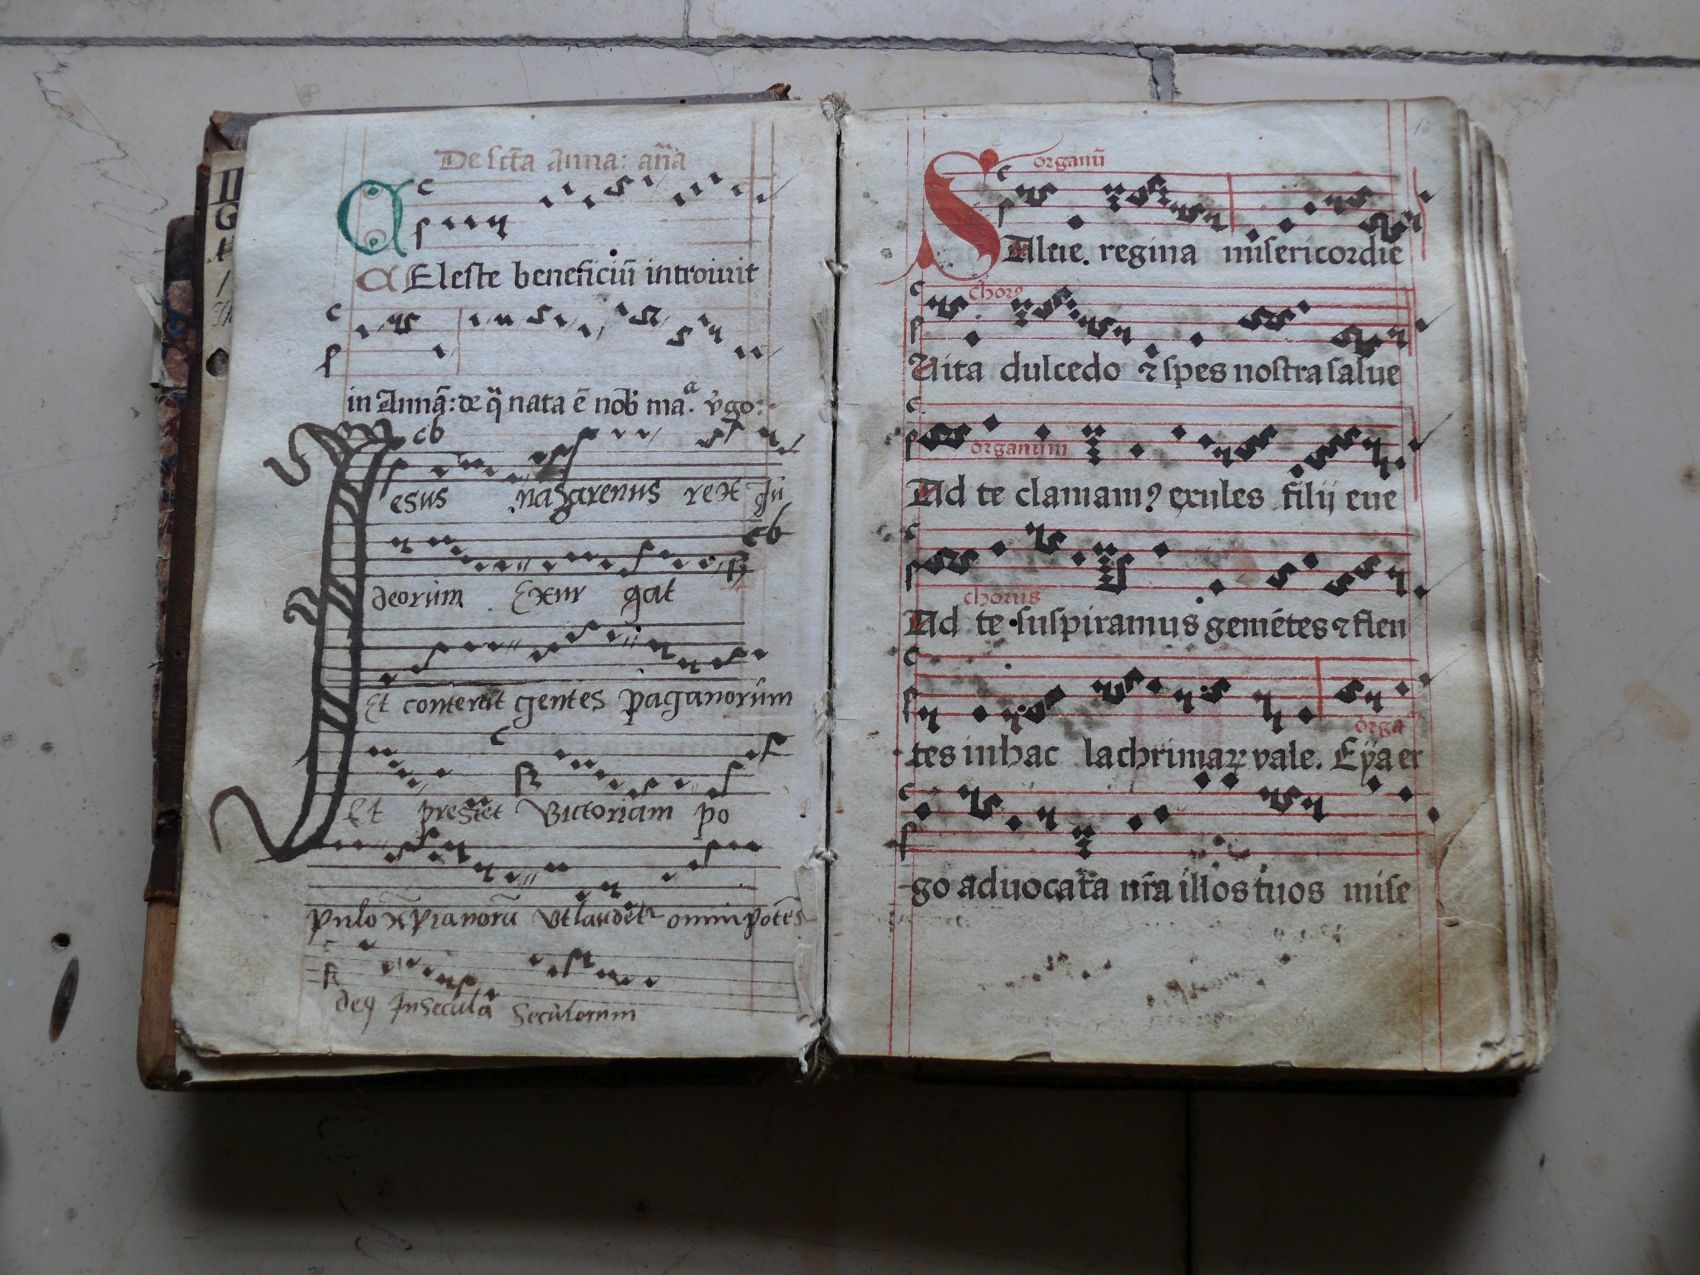 De scta Anna: aña
CEleste beneficiū introiuit
in Annā: de q̄ nata ē nob ma.a v̄go:
cb
esus nazarenus rex Ju
cb
deorum Exur gat
Et conterat gentes paganorum
Et prestet Victoriam po
pulo xp̄ianorū Vt laudet omnipotēs
deq In secula Seculorum
organū
SAlue. regina misericordie
chorꝰ
Uita dulcedo ⁊ spes nostra salue
organum
Ad te clamamꝰ exules filij eue
chorus
Ad te suspiramus gemētes ⁊ flen
tes in hac lachrimaꝝ vale. Eya er
orga
go aduocata nr̄a illos tuos mise